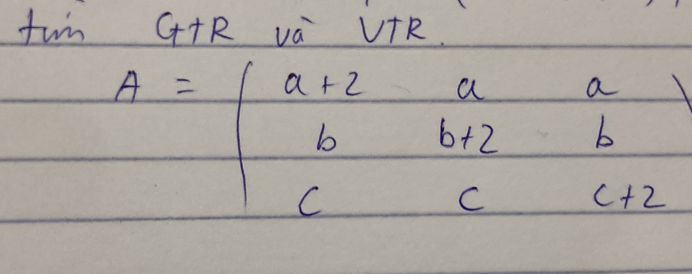 tìm GTR và VTR.
A = ( a+2 a a )
b b+2 b
c c c+2